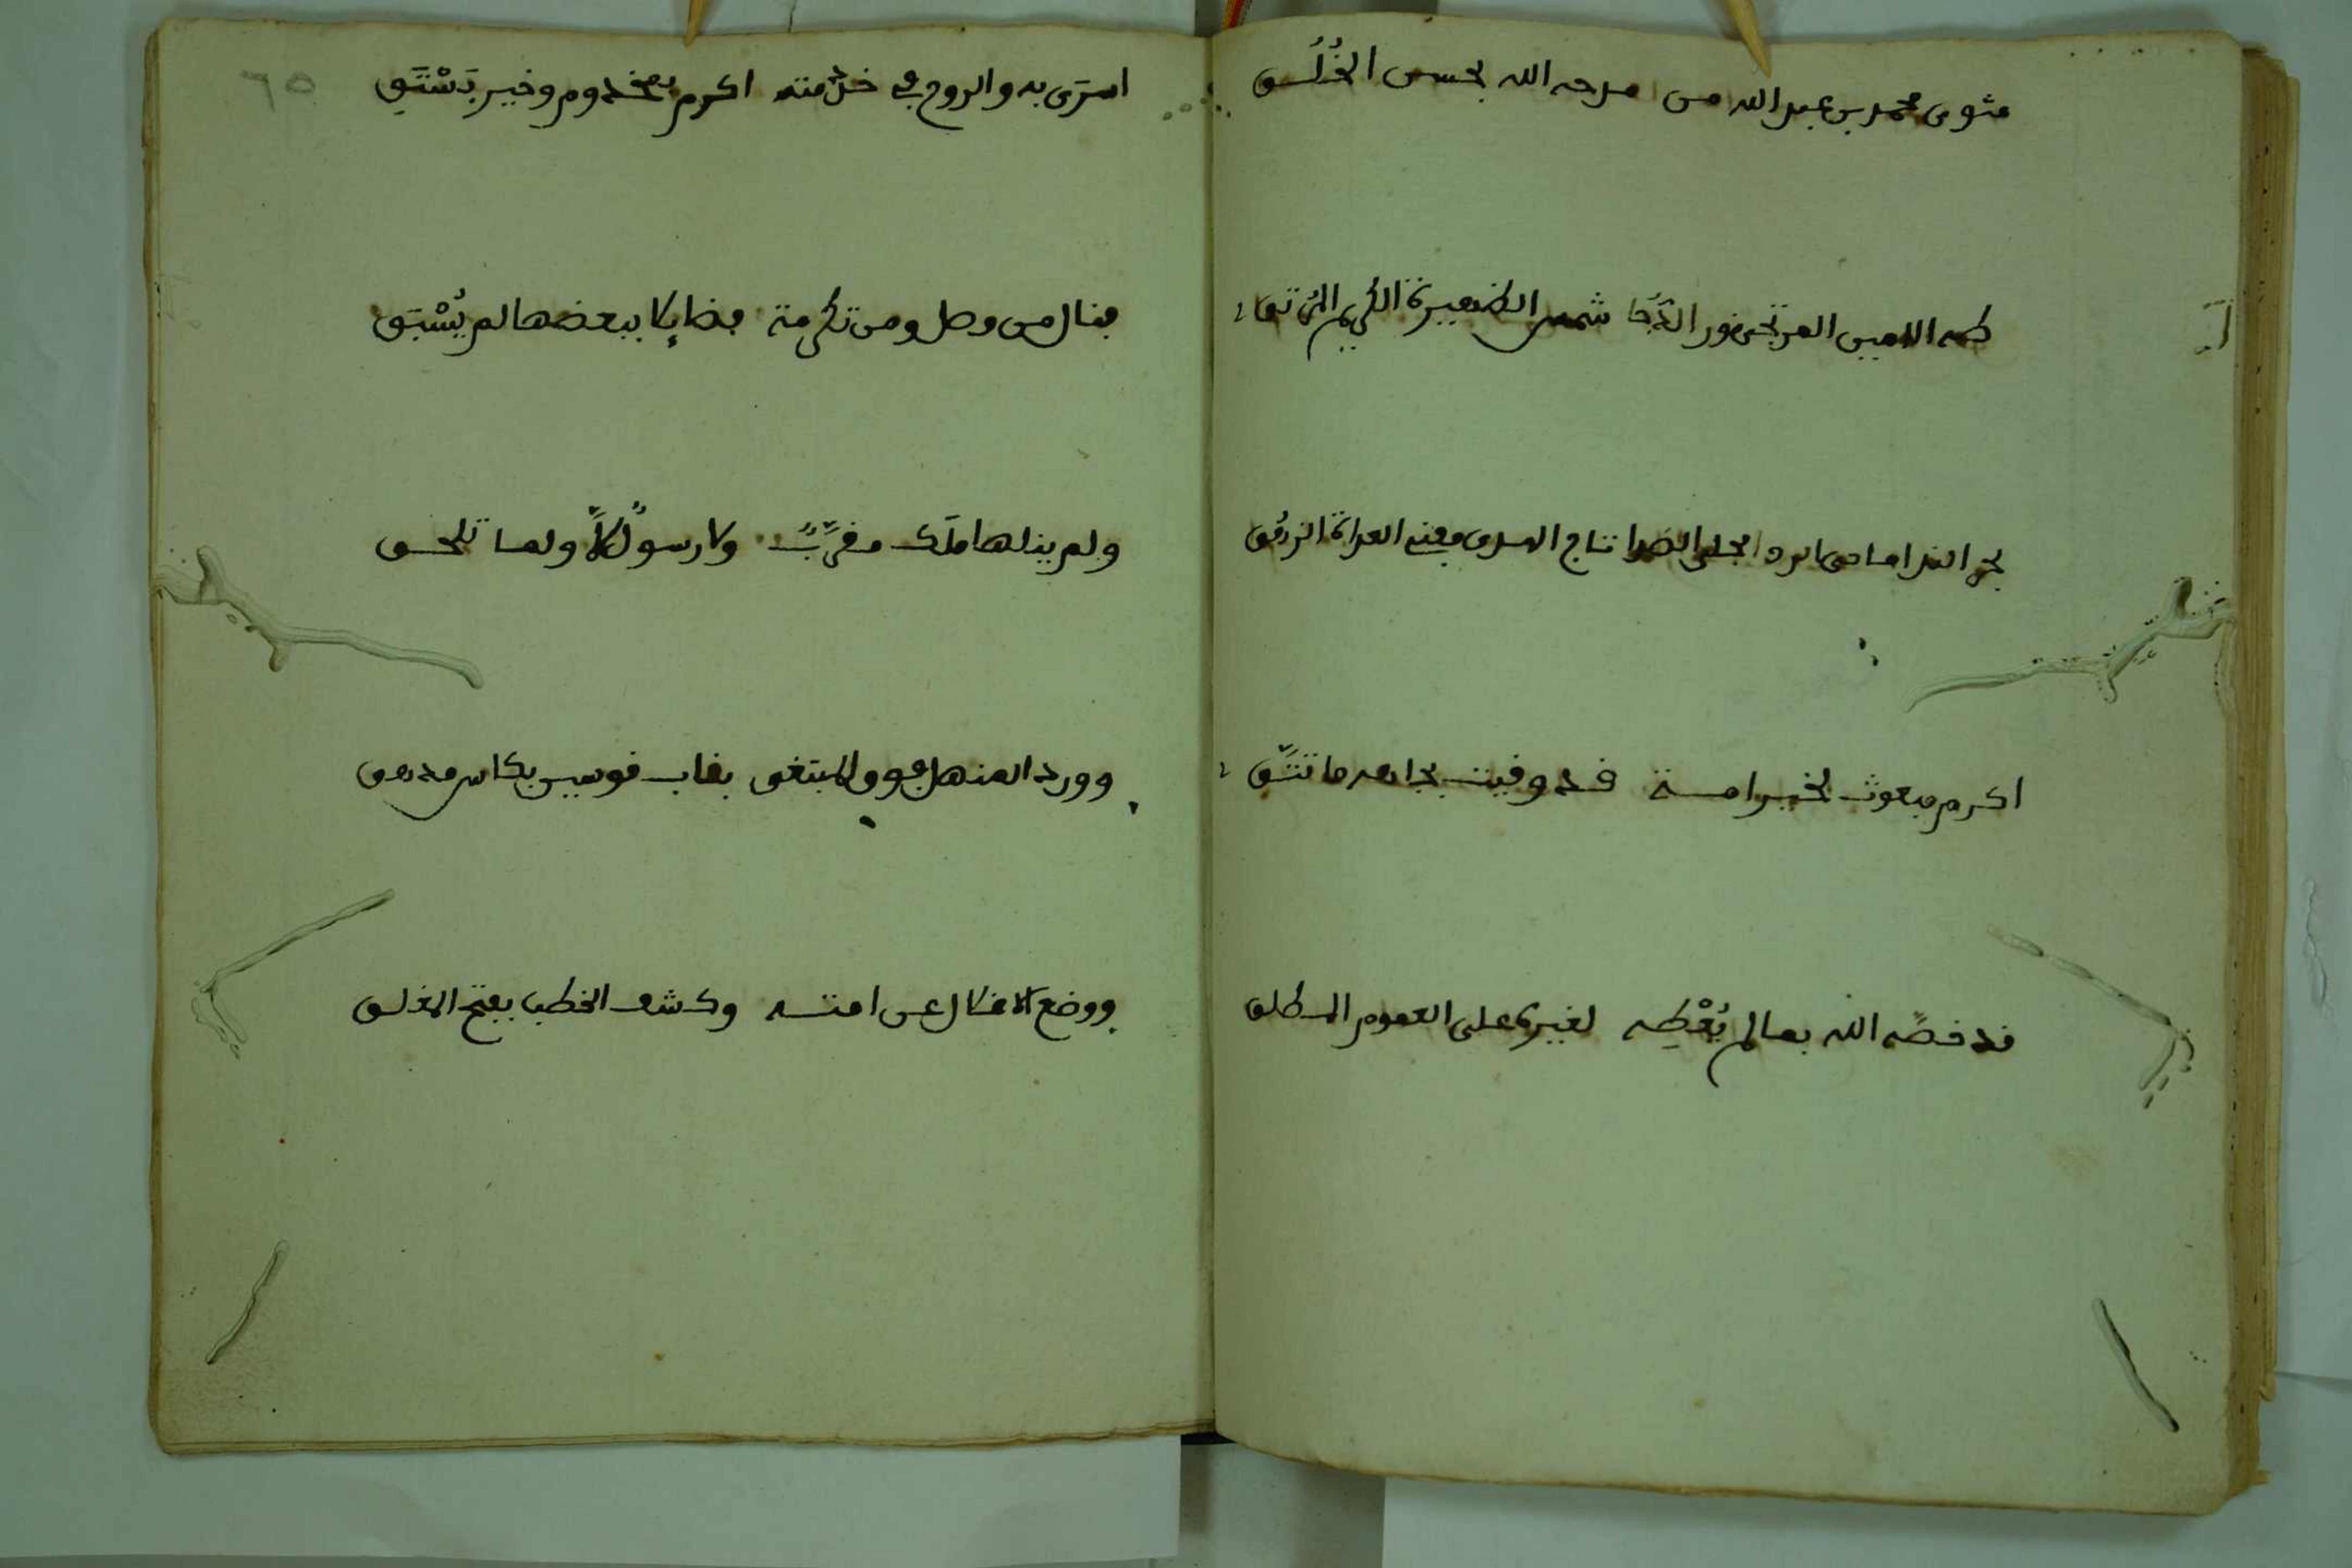 مثوى محمد بن عبد الله من مدحه الله بحسن الخُلُق
طه الامين المرتجى نور الدُّجَا شمس الظهيرة الكريم المرتقا
بحر الندا ماحى الردا مجلى الصدا تاج الهدى مفنى العداة الزرُق
اكرم مبعوث لخير امة قد وفيت بجاهه ما تتَّق
قد خصَّه الله بما لم يُعْطِه لغيره على العموم المطلق
٦٥
اسرَى به والروح في خدمته اكرم بمخدوم وخير
فنال من وصل ومن تكرمة فضايلا ببعضها لم يُسْبَق
ولم ينلها ملَك مقرَّبٌ ولا رسولٌ لا ولما تلحق
وورد المنهل فوق المبتغى بقاب قوسين بكاس مدهق
ووضع الاثقال عن امته وكشف الخطب بفتح المغلق